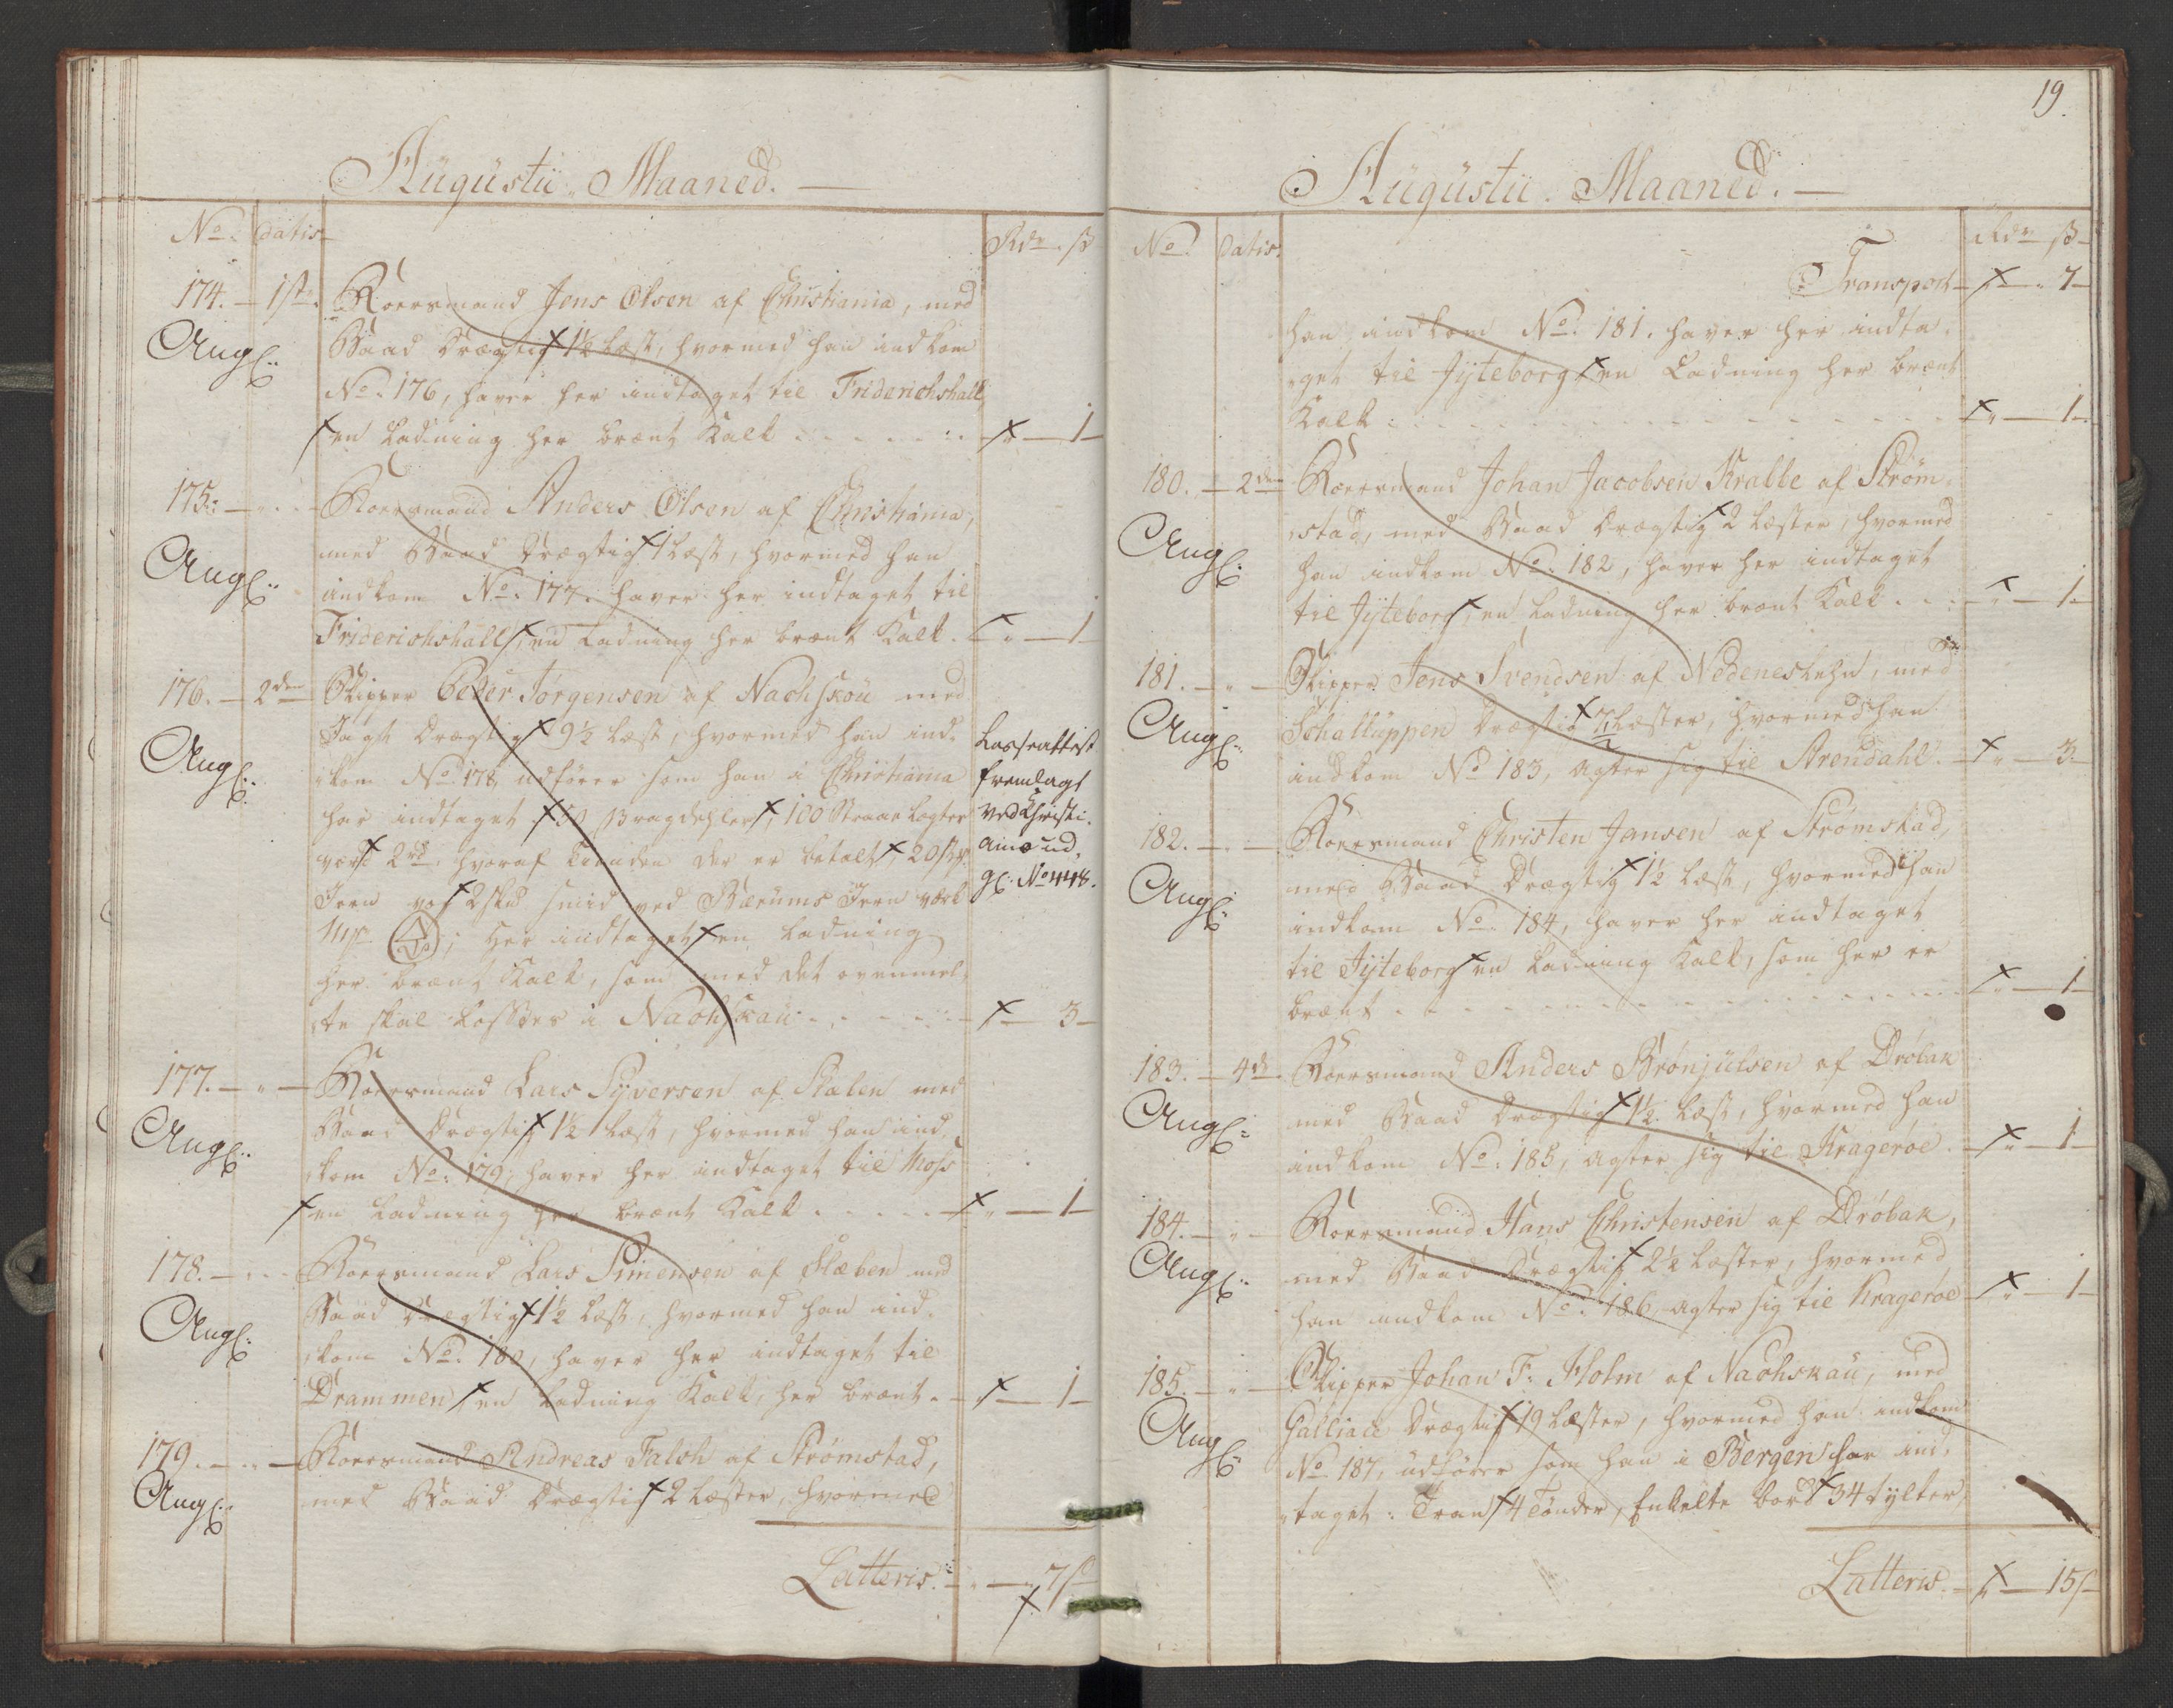 Augustii Maaned.
No. Datis Rdr. ß
174. 1ste Roersmand Jens Olsen af Christiania, med
Angl: Baad drægtig 1½ Læst, hvormed han indkom
No. 176, haver her indtaget til Friderichshall
en Ladning her brænt Kalk 1
175. Roersmand Anders Olsen af Christiania,
med Baad drægtig 1 Læst, hvormed han
Angl: indkom No. 177. haver her indtaget til
Friderichshall, en Ladning her brænt Kalk. 1
176. 2den Skipper Peder Jørgensen af Nachskou med
Jagt drægtig 9½ Læst, hvormed han ind-
Angl: kom No. 178, udfører som han i Christiania
har indtaget 50 Bragdehler, 100 Straae Lægter
værd 2 rd. hvoraf Tienden der er betalt, 20 ß
Jern 2 smid ved Bærums Jern værk
Her indtaget en Ladning
her brænt Kalk, som med det ovenmel-
te skal Losses i Nachskau 3
Losseattest
fremlagt
ved Christi-
ania ud-
g: No 448.
177. Roersmand Lars Syversen af Stalen med
Angl: Baad drægtig 1½ Læst, hvormed han ind-
kom No. 179, haver her indtaget til Moss
en Ladning her brænt Kalk 1
178. Roersmand Lars Simensen af Slæben med
Angl: Baad drægtig 1½ Læst, hvormed han ind-
kom No. 180, haver her indtaget til
Drammen en Ladning Kalk, her brænt. 1
179. Roersmand Andreas Falch af Strømstad,
Angl: med Baad drægtig 2 Læster, hvormed
Latteris. 7 ß
19.
Augustii Maaned.
No. Datis. Rdr ß
Transport 7
han indkom No. 181. haver her indta-
get til Jyteborg en Ladning her brænt
Kalk 1
180. 2den Roersmand Johan Jacobsen Krabbe af Strøm-
stad, med Baad drægtig 2 Læster, hvormed
Angl: han indkom No. 182, haver her indtaget
til Jyteborg, en Ladning her brænt Kalk 1
181. Skipper Jens Svendsen af Nedeneslehn, med
Angl: Schalluppen drægtig 7½ Læster, hvormed han
indkom No 183, agter sig til Arendahl. 3
182. Roersmand Christen Jansen af Strømstad,
Angl: med Baad drægtig 1½ Læst, hvormed han
indkom No. 184, haver her indtaget
til Jyteborg en Ladning Kalk, som her er
brænt 1
183. 4de Roersmand Anders Brønjulsen af Drøbak
Angl: med Baad drægtig 1½ Læst, hvormed han
indkom No. 185, agter sig til Kragerøe. 1
184. Roersmand Hans Christensen af Drøbak,
Angl: med Baad drægtig 2½ Læster, hvormed
han indkom No. 186, agter sig til Kragerøe 1
185. Skipper Johan F: Holm af Nachskau, med
Angl: Galliace drægtig 19 Læster, hvormed han indkom
No 187, udfører som han i Bergen har ind-
taget: Tran 4 Tønder, Enkelte bord 34 tylter,
Latteris. 15 ß